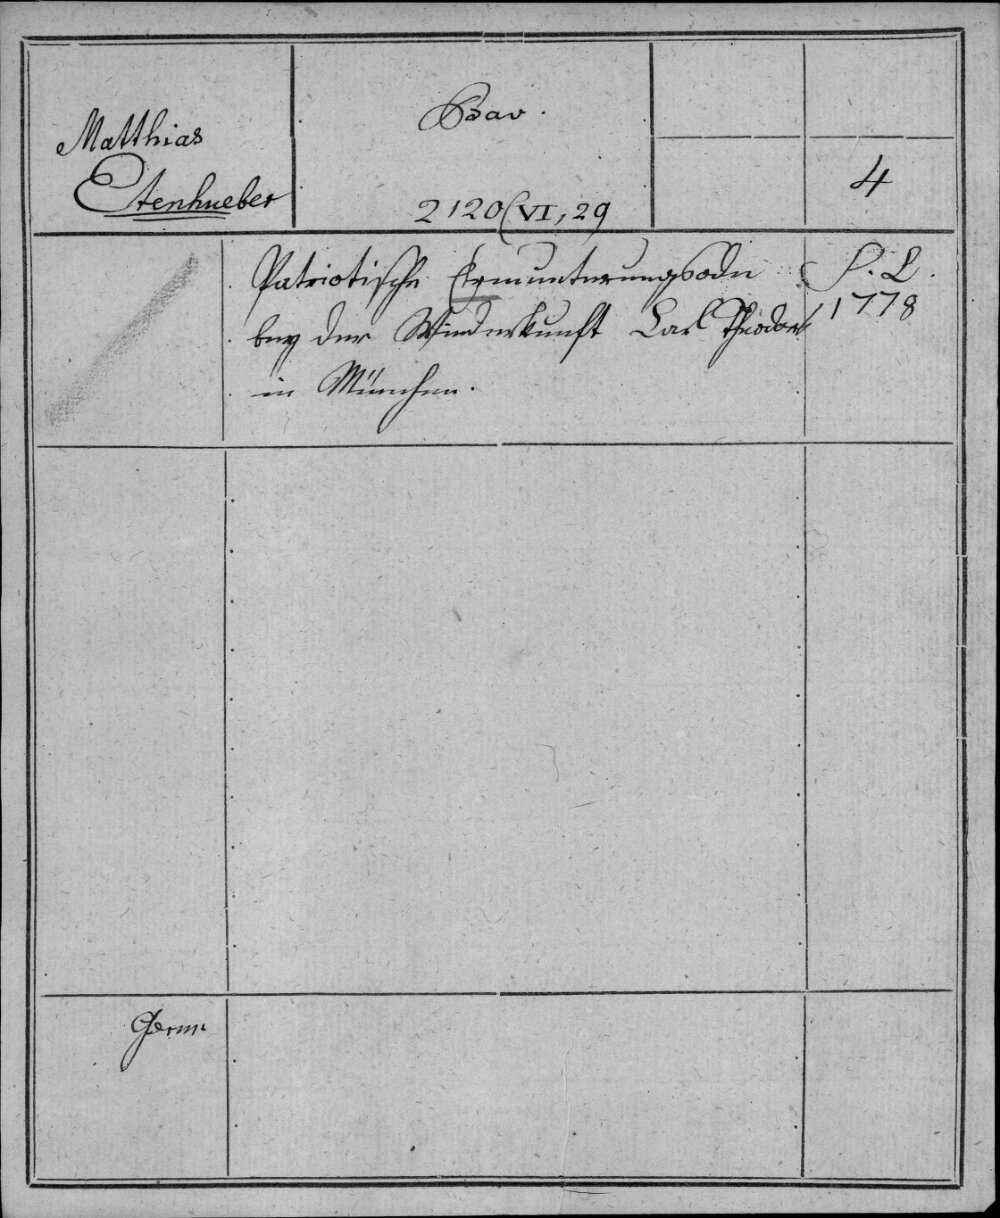 Matthias
Etenhueber
Bav.
2120(VI, 29
4
Patriotische Ermunterungsode
bey der Wiederkunft Carl Theodors
in München.
S. L.
1778
Germ